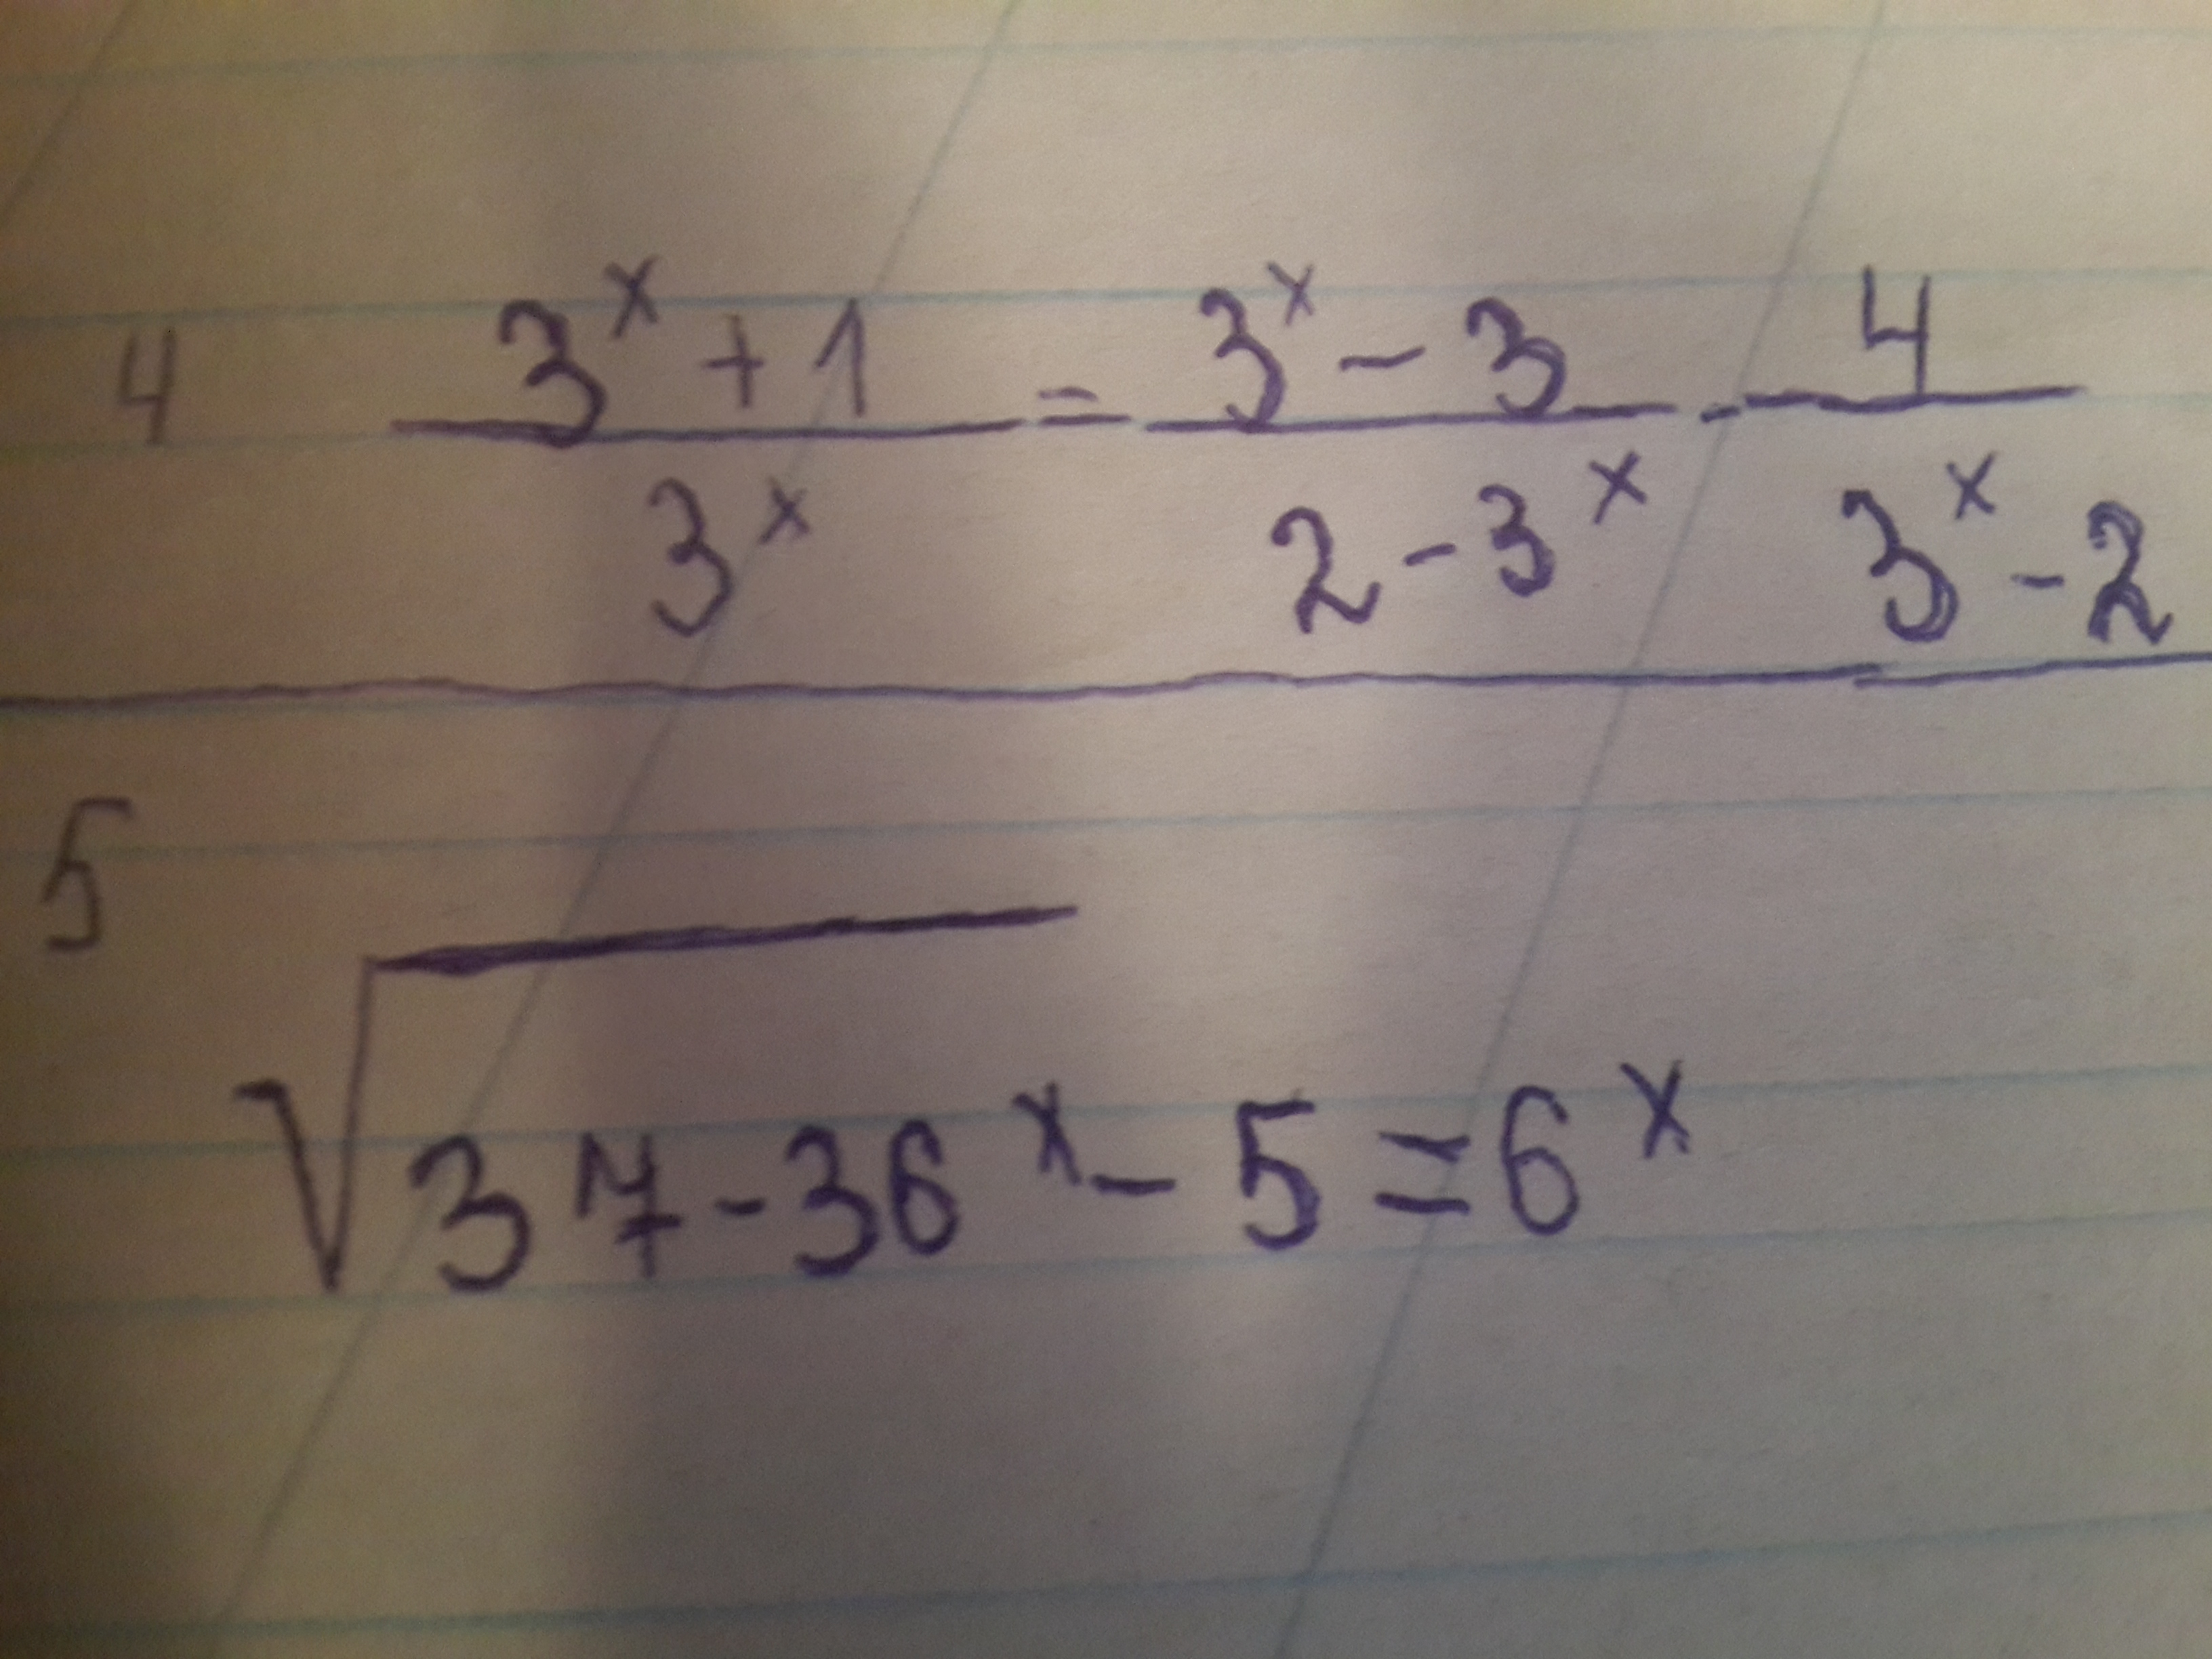 4 (3^x + 1)/(3^x) = (3^x - 3)/(2 - 3^x) - 4/(3^x - 2)
5
√(37 - 36^x) - 5 = 6^x